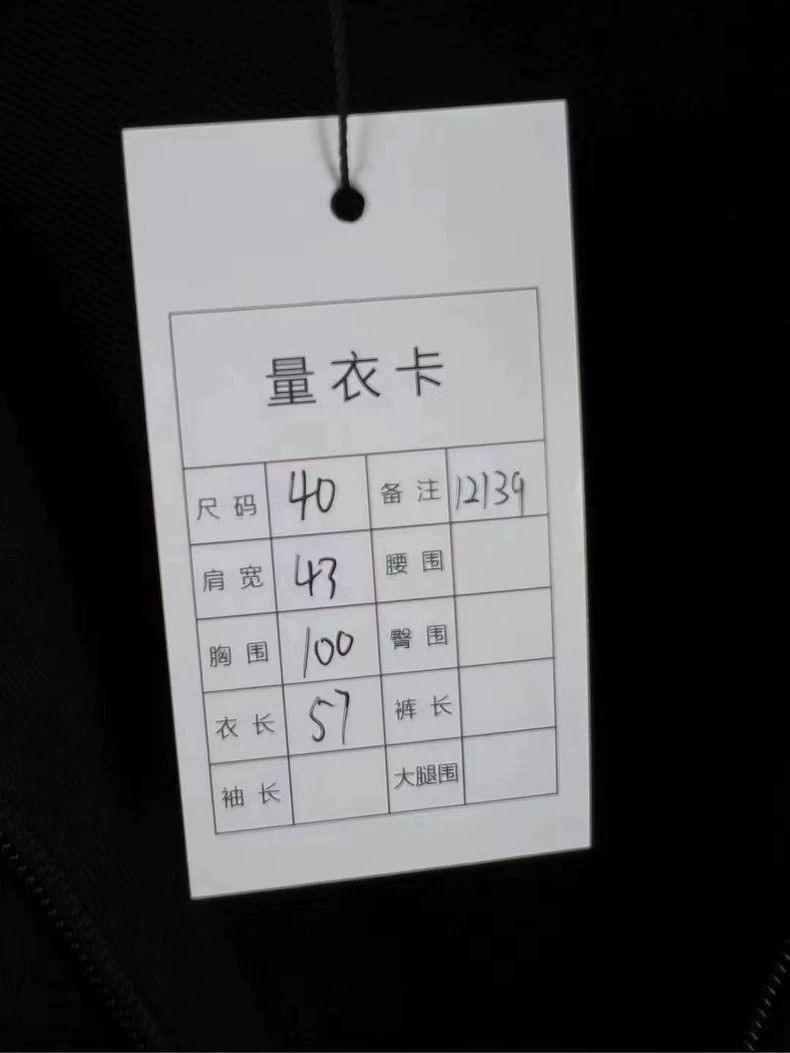 量衣卡
尺码 40 备注 12139
肩宽 43 腰围
胸围 100 臀围
衣长 57 裤长
袖长 大腿围